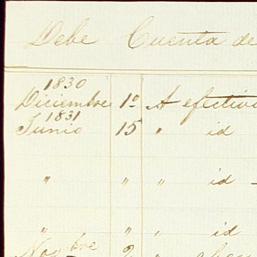 Debe Cuenta de
1830
Diciembre 1º A efectivo
1831
Junio 15 " id
" " " id
" " " id
Nobre 2